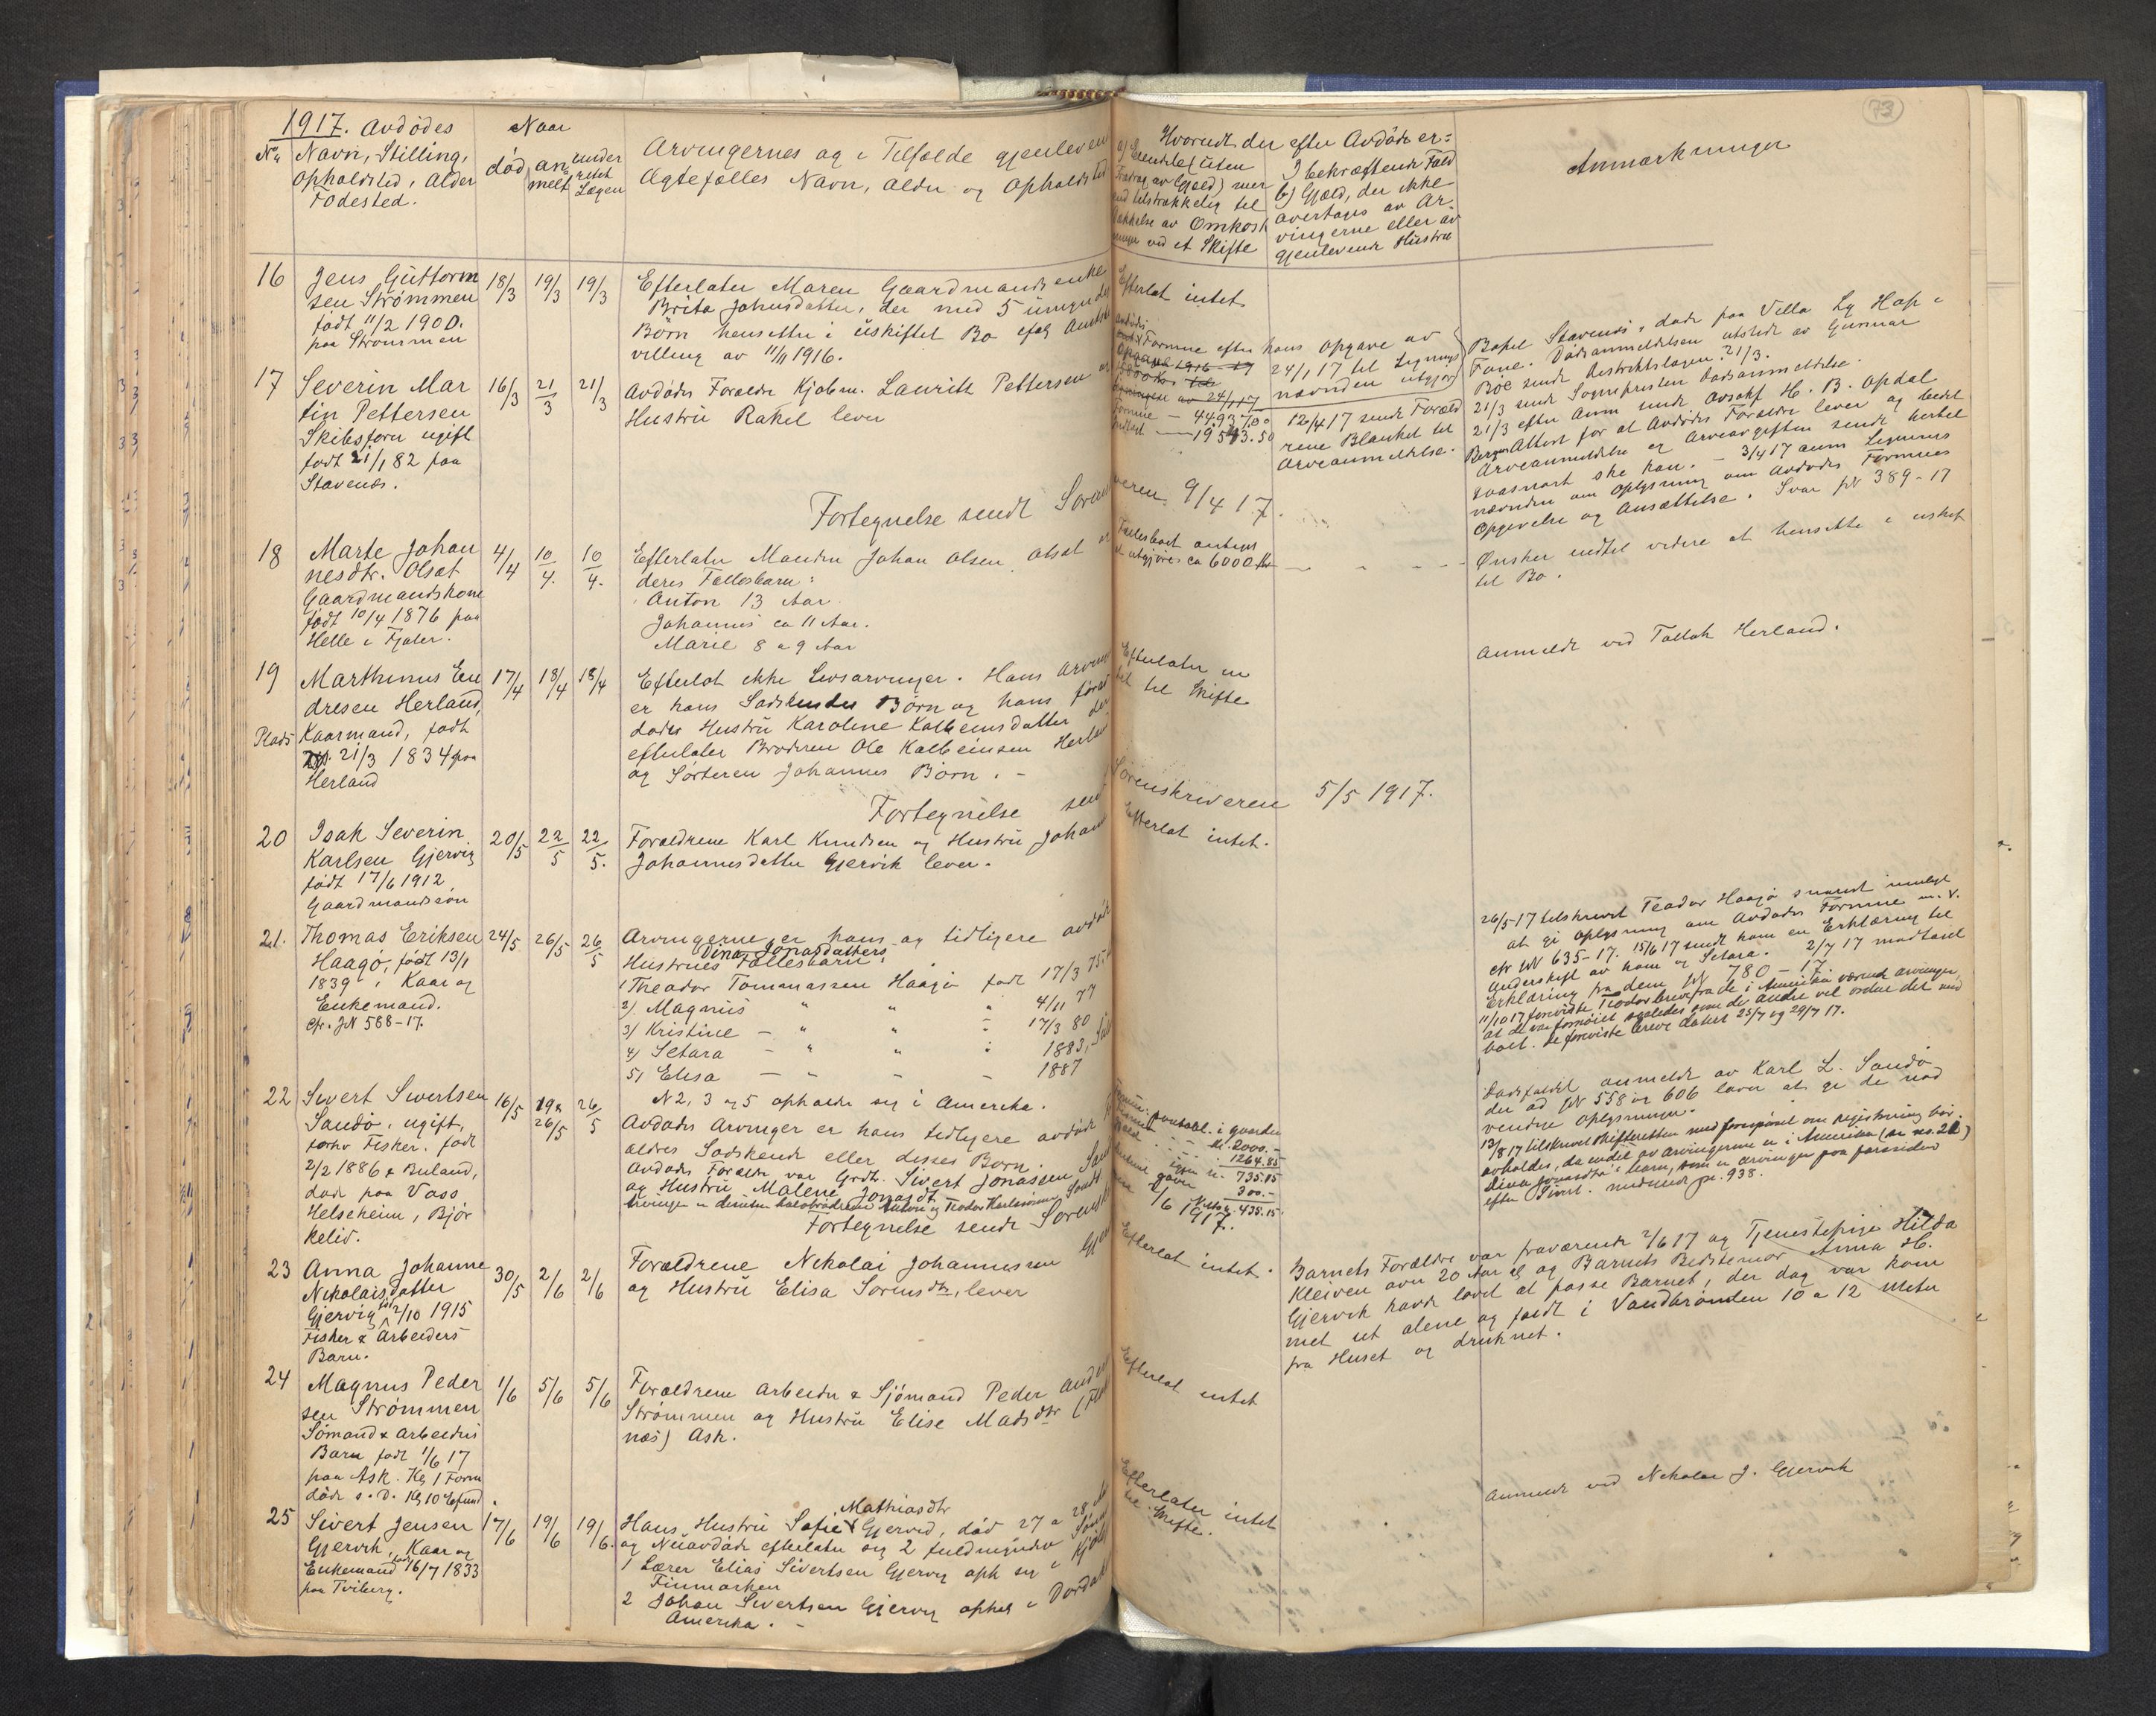 73
1917. Avdödes
No Navn, Stilling,
Opholdsted, Alder
Födested.
Naar
död
an
melt
under
rettet
Lægen
Arvingernes og i Tilfælde gjenleven
Ægtefælles Navn, Alder og Opholdsted
Hvorvidt der efter Avdöde er:
a) Eiendele (uten
Fradrag av Gjæld) mer
end tilstrækkelig til
Dækkelse av Omkost
ninger ved et Skifte
I bekræftende Fald
b) Gjæld, der ikke
overtages av Ar
vingerne eller av
gjenlevende Hustru
Anmærkninger
16 Jens Guttorm
sen Strömmen
født 11/2 1900.
paa Strømmen
18/3 19/3 19/3
Efterlater Moren Gaardmandsenke
Brita Johnsdatter, der med 5 umyndige
Börn hensetter i uskiftet Bo efter
villing av 11/11 1916.
Efterlot intet
17 Severin Mar
tin Pettersen
Skibsförer ugift
født 21/1 82 paa
Stavenes.
16/3 21/3 21/3
Avdödes Forældre Kjøbm. Laurits Pettersen og
Hustru Rakel lever
Avdödes
Formue efter hans Opgave av
24/1 17 til Lignings
nævnden utgjør
Formue - 44937.00
Indtægt - 19543.50
12/4 17 sendt Foræld
rene Blanket til
Arveanmeldelse.
Bopel Stavenes, döde paa Villa Hop i
Fane. Dödsanmeldelsen utstedt av Gunnar
Böe sendt Distriktslægen 21/3.
21/3 sendt Sognepresten Dødsanmeldelse.
21/3 efter Anm sendt Avsakf H. B. Opdal
Bergen Attest for at Avdödes Forældre lever og bedet
Arveanmeldelse og Arveavgiften sendt hertil
saasnart ske kan. - 3/4 17 anm Lignings
nævnden om Oplysning om Avdödes Formues
Opgivelse og Ansættelse. Svar JN 389-17
Fortegnelse sendt Sorenskriveren 9/4 17.
18 Marte Johan
nesdtr. Olset
Gaardmandskone
født 10/4 1876 paa
Helle i Fjaler.
4/4 10/4. 10/4.
Efterlater Manden Johan Olsen Olset og
deres Fællesbarn:
Anton 13 Aar
Johannes ca 11 Aar.
Marie 8 a 9 Aar
Fællesboet antages
at utgjöre ca 6000 Kr
Önsker indtil videre at hensitte i uskif
tet Bo.
19 Marthinus En
dresen Herland,
Plads Kaarmand, født
21/3 1834 paa
Herland
17/4 18/4 18/4
Efterlot ikke Livsarvinger. Hans Arvinger
er hans Södskendes Börn og hans forud
døde Hustru Karoline Kolbeinsdatter der
efterlater Broderen Ole Kolbeinsen Herland
og Sösteren Johannes Börn. -
Efterlater in
tet til Skifte
Anmeldt ved Tollak Herland.
Fortegnelse sendt Sorenskriveren 5/5 1917.
20 Isak Severin
Karlsen Gjervig
født 17/6 1912,
Gaardmandssön
20/5 22/5 22/5.
Forældrene Karl Knudsen og Hustru Johanne
Johannesdatter Gjervik lever.
Efterlot intet.
21. Thomas Eriksen
Haagö, født 13/1
1839, Kaar og
Enkemand.
cfr. JN 588-17.
24/5 26/5 26/5
Arvingerne er hans og tidligere avdöde
Dina Jonasdatters
Hustrues Fællesbarn:
1) Theodor Tommassen Haagö født 17/3 75
2) Magnus " " " 4/11 77
3) Kristine - " " - 17/3 80
4) Setara - " " - 1883,
5) Elisa - " - - 1887
N 2, 3 og 5 opholder sig i Amerika.
26/5-17 tilskrevet Teodor Haagö snarest muligt
at gi Oplysning om Avdödes Formue m. v.
cfr JN 635-17. 15/6 17 sendt ham en Erklæring til
Underskrift av ham og Setara. 2/7 17 modtaat
Erklæring fra dem JN 780-17.
11/10 17 foreviste Teodor breve fra de i Amerika værende arvinger,
at de var fornöiet saaledes som de andre vil ordne det med
boet. De foreviste breve datert 25/7 og 29/7 17.
22 Sivert Sivertsen
Sandö, ugift,
forhv Fisker, født
2/2 1886 i Buland,
døde paa Voss
Helseheim, Bjør
kelid.
16/5 19 & 26/5 26/5
Avdödes Arvinger er hans tidligere avdöde
ældres Sødskende eller disses Börn.
Avdödes Forældre var Grdb. Sivert Jonassen Sandö
og Hustru Malene Jonasdtr.
Arvinger er desuten halvbrödrene Anton og Teodor Karlssönner Sandö
Kr. 2000.-
1264.85
735.15
300.-
Netto kr. 435.15
Dødsfaldet anmeldt av Karl L. Sandö
der ad JN 558 og 606 lover at gi de nød
vendige oplysninger.
13/8 17 tilskrevet Skifteretten med forespørsel om registrering bör
avholdes, da endel av arvingerne er i Amerika (se no. 21)
Dina Jonasdtr's barn, som er arvinger paa farssiden
efter Sivert. nr. 938.
Fortegnelse sendt Sorenskriveren 2/6 1917.
23 Anna Johanne
Nikolaisdatter
Gjervig født 2/10 1915
Fisker & Arbeiders
Barn.
30/5 2/6 2/6
Forældrene Nikolai Johannessen Gjervik
og Hustru Elisa Sörensdtr, lever
Efterlot intet.
Barnets Forældre var fraværende 2/6 17 og Tjenestepige Hilda
Kleiven over 20 Aar og Barnets Bedstemor Anna H.
Gjervik havde lovet at passe Barnet, der dog var kom
met ut alene og faldt i Vandbrönden 10 a 12 Meter
fra Huset og druknet.
24 Magnus Peder
sen Strömmen
Sømand & Arbeiders
Barn født 1/6 17
paa Ask. Kl 1 Form
döde s. D. Kl 10 Eftmd.
1/6 5/6 5/6
Forældrene Arbeider & Sjömand Peder
Strömmen og Hustru Elise Madsdtr
næs) Ask.
Efterlot intet
25 Sivert Jensen
Gjervik, Kaar og
Enkemand født 16/7 1833
paa Tviberg.
17/6 19/6 19/6.
Mathiasdtr
Hans Hustru Sofie Gjervik, död 27 a 28
og Nuavdöde efterlater sig 2 fuldmyndige Sönner
1 Lærer Elias Sivertsen Gjervig oph sig i
Finmarken
2 Johan Sivertsen Gjervig ophol i
Amerika. -
Efterlater intet
til Skifte.
Anmeldt ved Nikolai J. Gjervik